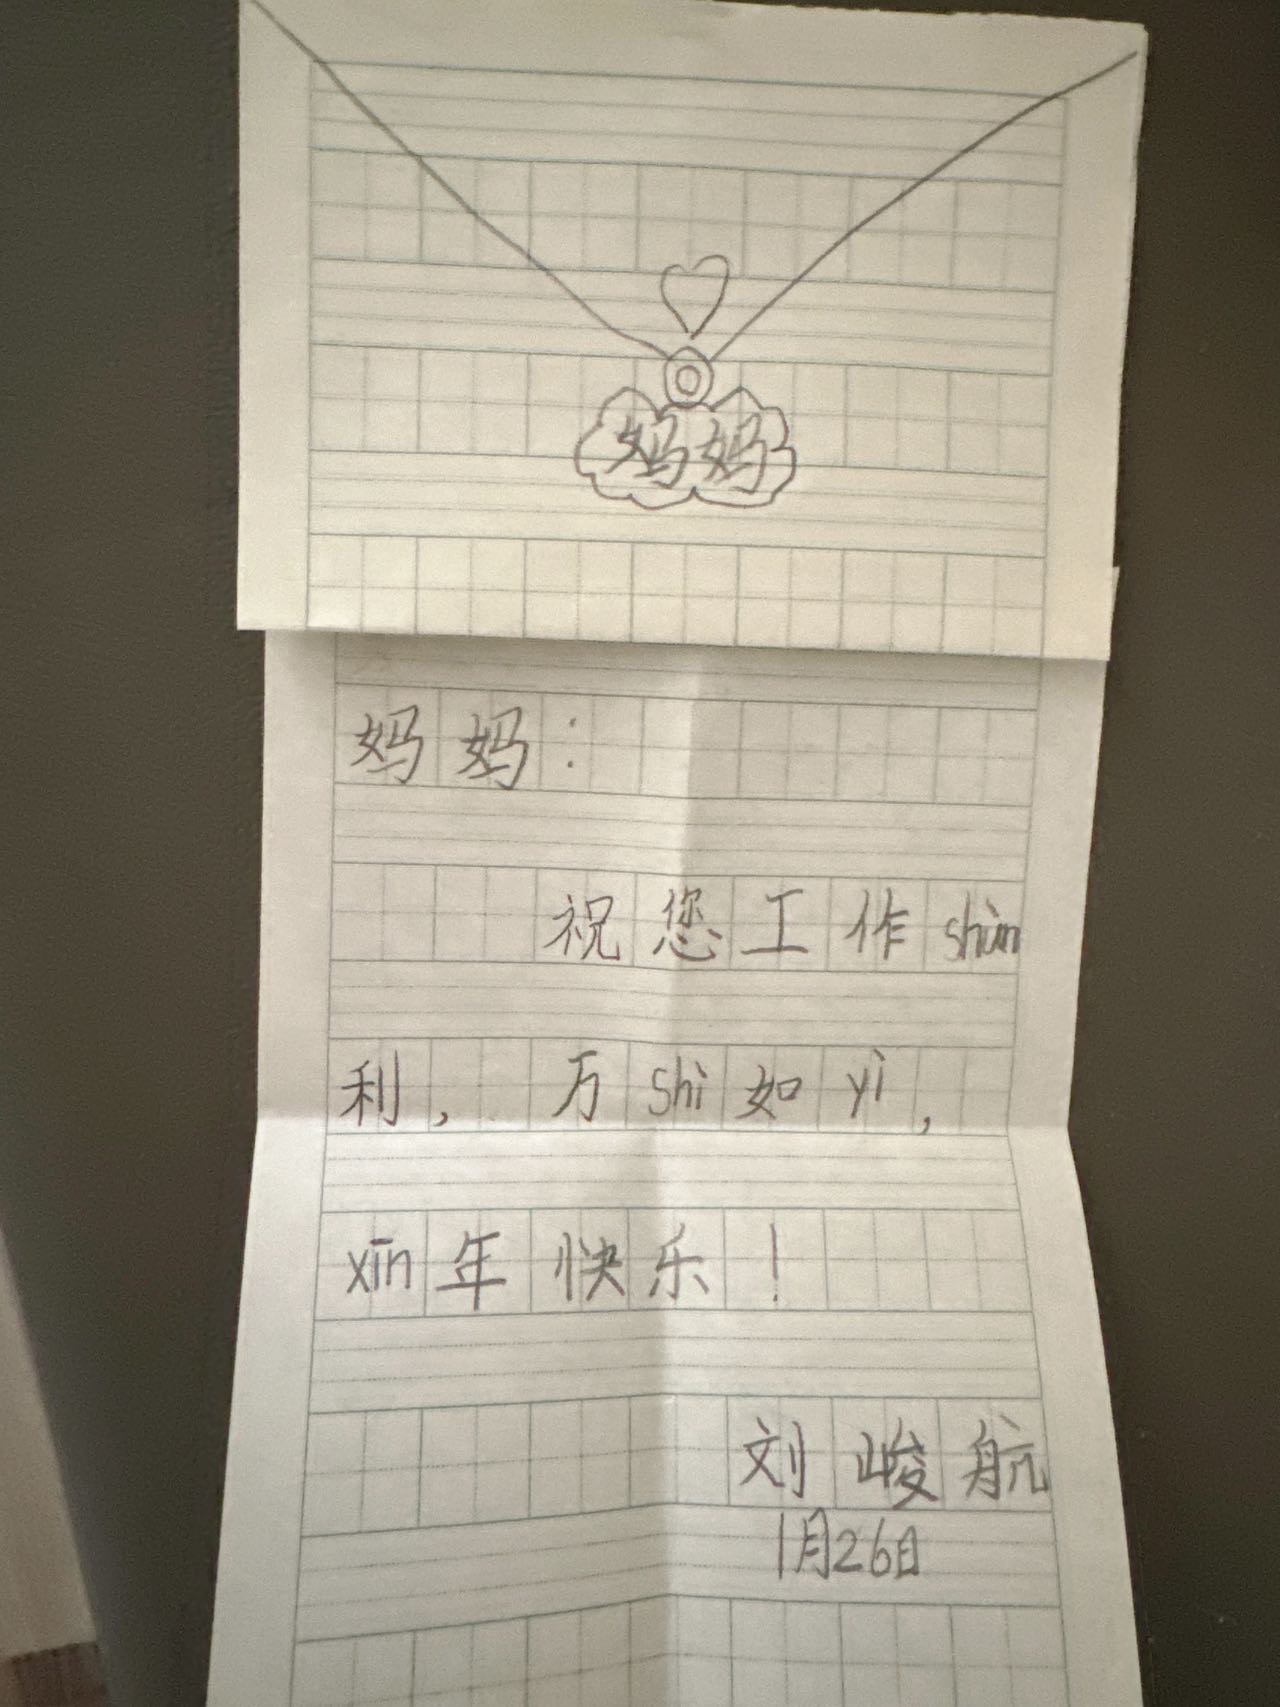 妈妈
妈妈：
祝您工作shùn
利，万shì如yì，
xīn年快乐！
刘峻航
1月26日